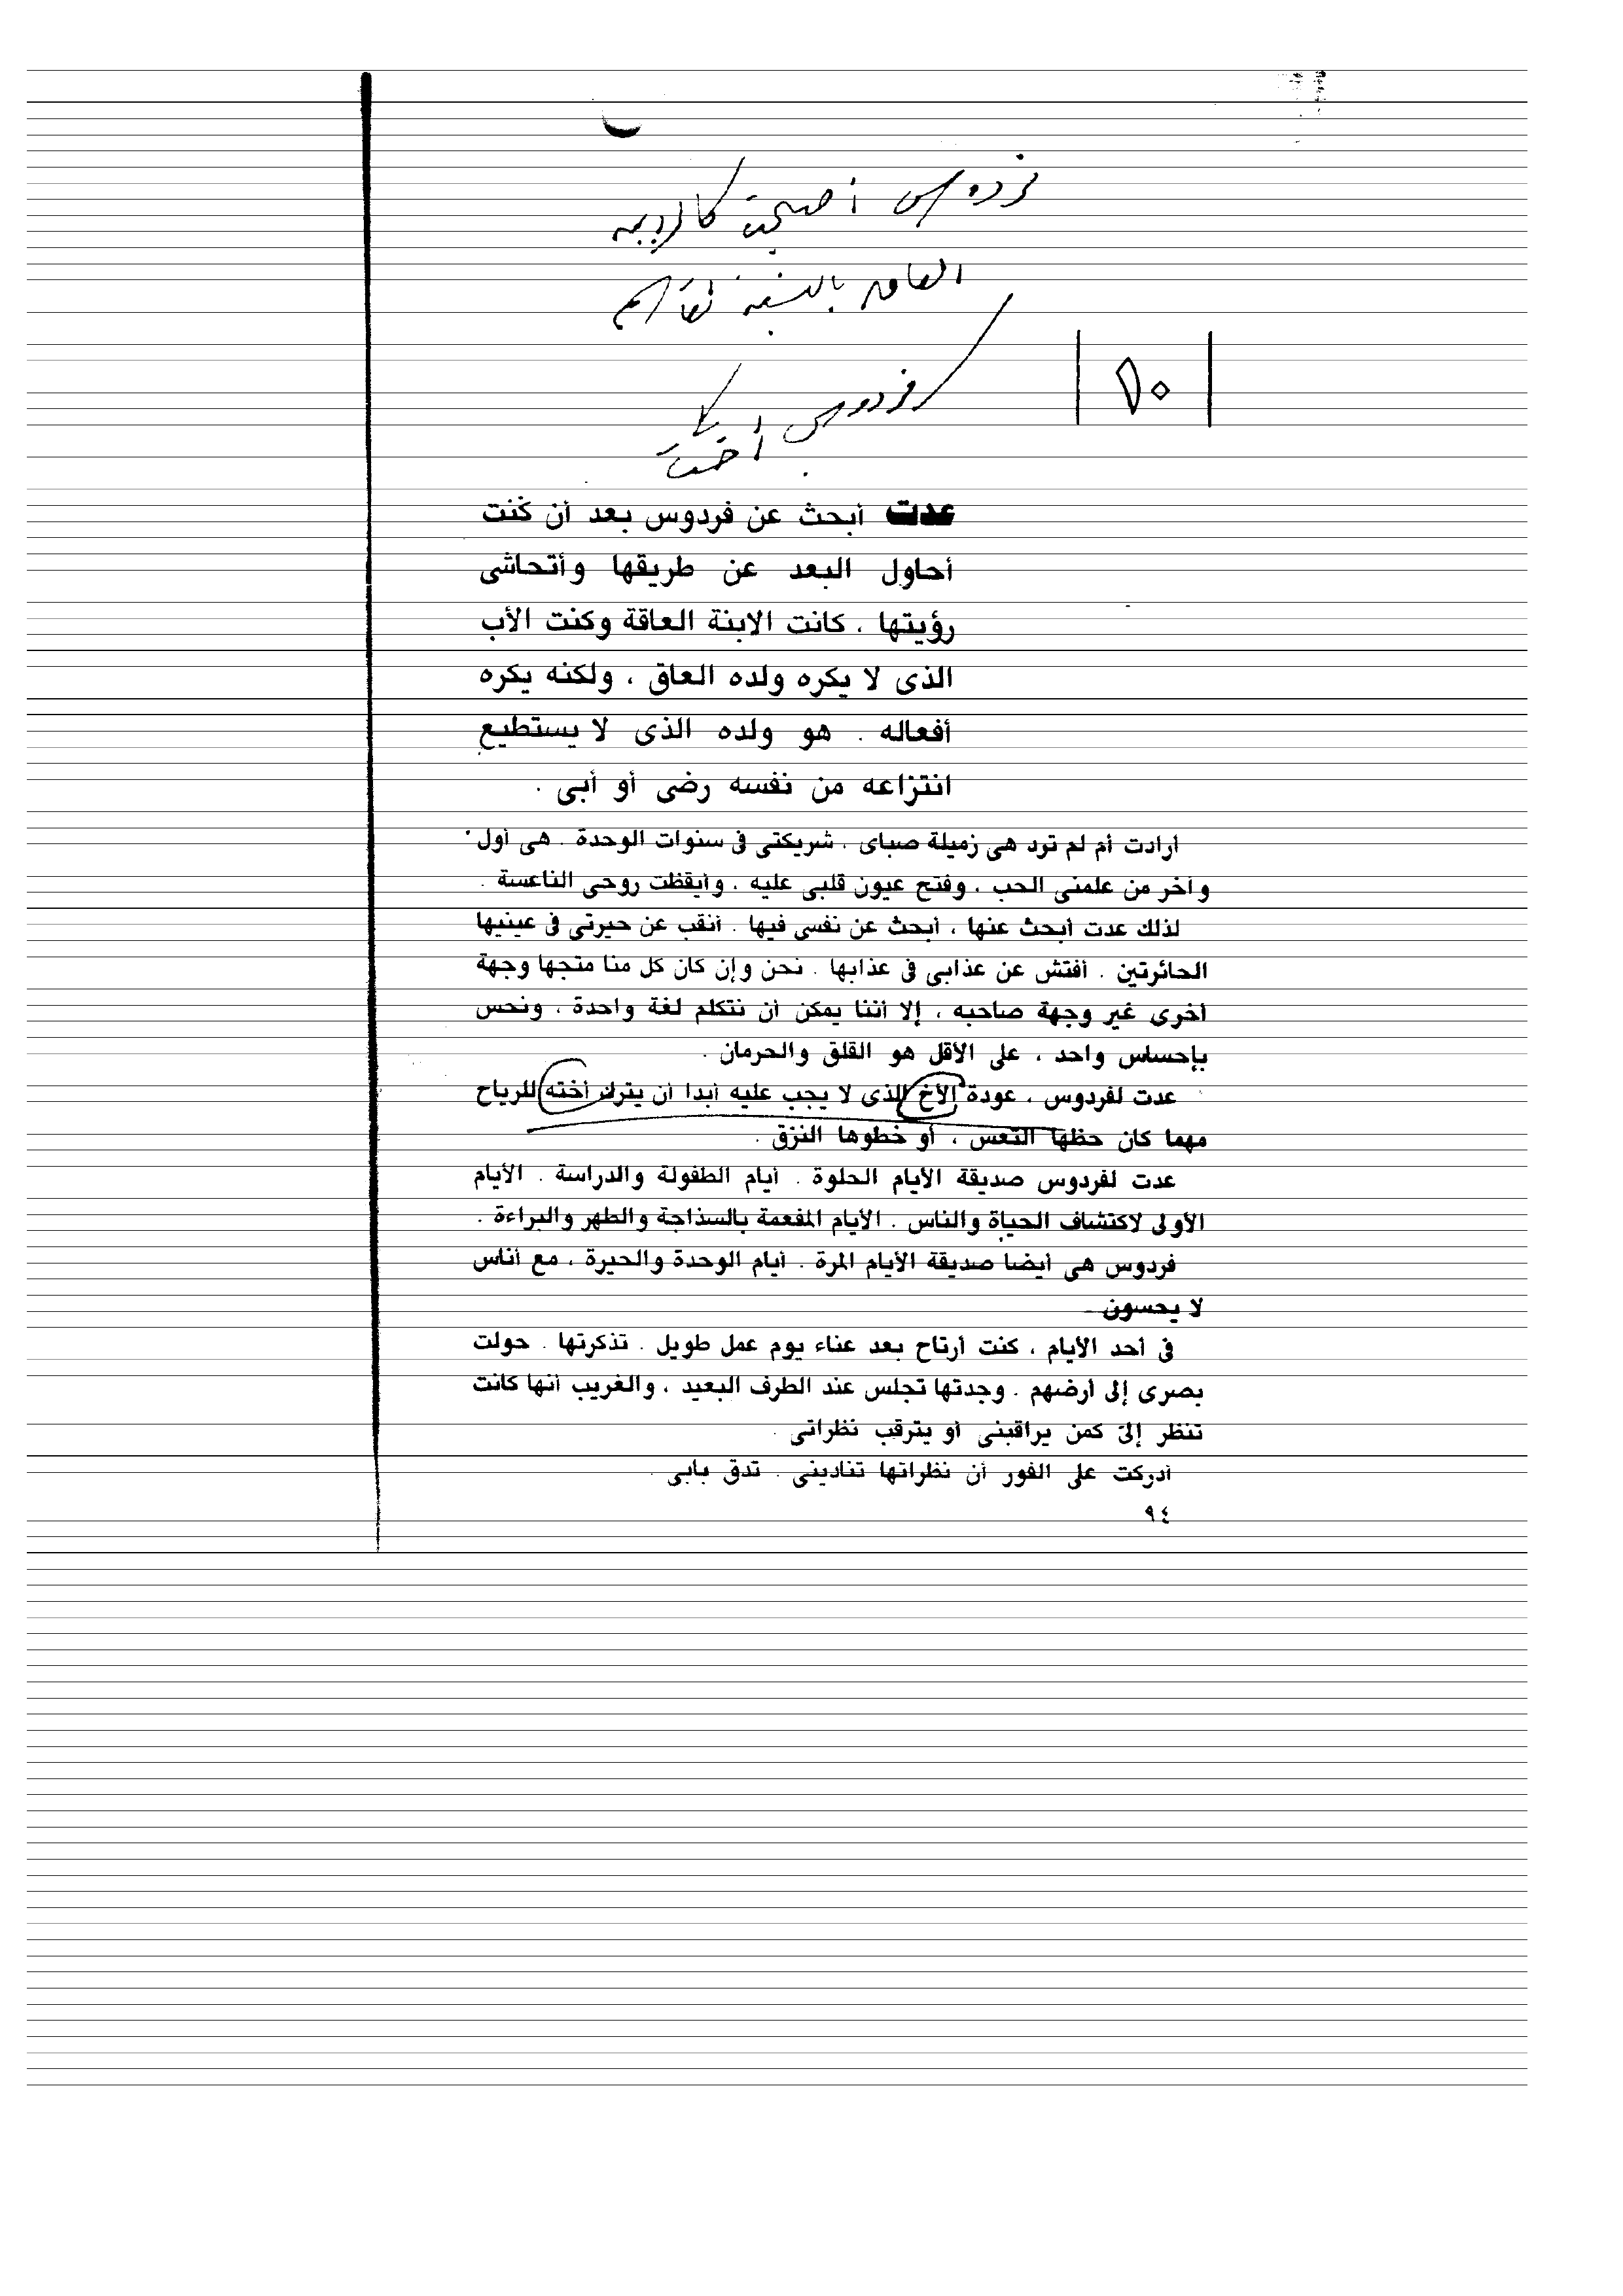 فردوس أصبحت كالابنه
العاقه بالنسبة
١٥
فردوس أخت
عدت أبحث عن فردوس بعد أن كنت
أحاول البعد عن طريقها وأتحاشى
رؤيتها . كانت الابنة العاقة وكنت الأب
الذى لا يكره ولده العاق ، ولكنه يكره
أفعاله . هو ولده الذى لا يستطيع
انتزاعه من نفسه رضى أو أبى .
أرادت أم لم ترد هى زميلة صباى ، شريكتى فى سنوات الوحدة . هى أول
وآخر من علمنى الحب ، وفتح عيون قلبى عليه ، وأيقظت روحى الناعسة .
لذلك عدت أبحث عنها ، أبحث عن نفسى فيها . أنقب عن حيرتى فى عينيها
الحائرتين . أفتش عن عذابى فى عذابها . نحن وإن كان كل منا متجها وجهة
أخرى غير وجهة صاحبه ، إلا أننا يمكن أن نتكلم لغة واحدة ، ونحس
بإحساس واحد ، على الأقل هو القلق والحرمان .
عدت لفردوس ، عودة الأخ الذى لا يجب عليه أبدا أن يترك أخته للرياح
مهما كان حظها التعس ، أو خطوها النزق .
عدت لفردوس صديقة الأيام الحلوة . أيام الطفولة والدراسة . الأيام
الأولى لاكتشاف الحياة والناس . الأيام المفعمة بالسذاجة والطهر والبراءة .
فردوس هى أيضا صديقة الأيام المرة . أيام الوحدة والحيرة ، مع أناس
لا يحسون
فى أحد الأيام ، كنت أرتاح بعد عناء يوم عمل طويل . تذكرتها . حولت
بصرى إلى أرضهم . وجدتها تجلس عند الطرف البعيد ، والغريب أنها كانت
تنظر إلىّ كمن يراقبنى أو يترقب نظراتى .
أدركت على الفور أن نظراتها تنادينى . تدق بابى .
٩٤